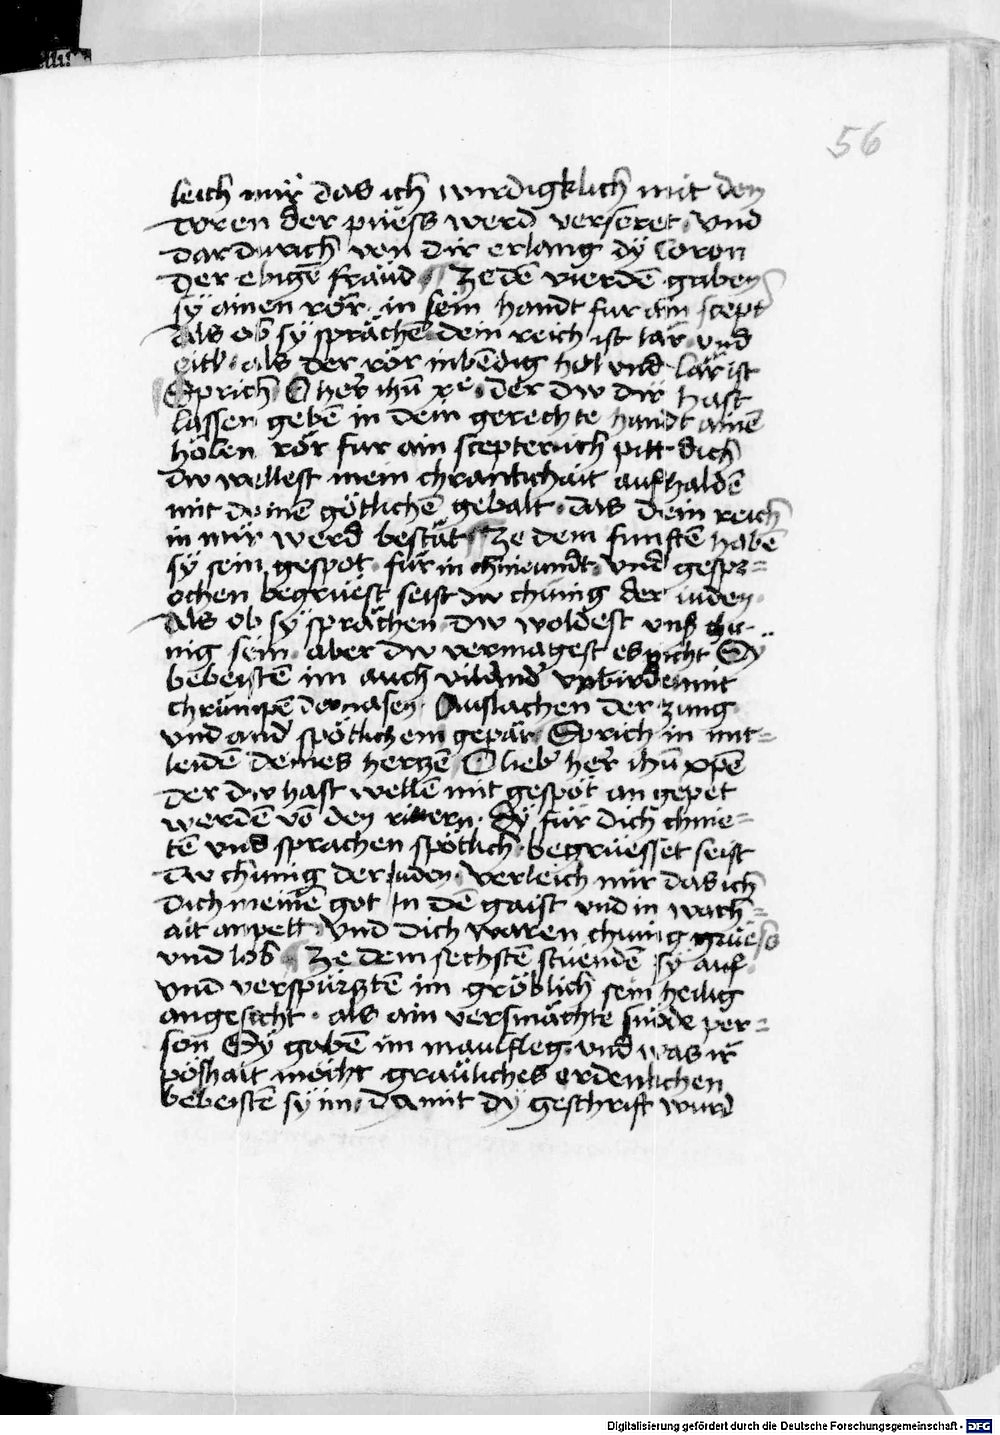 56
leich mir das ich wirdigklich mit den
toren der puess werd verseret vnd
dar durich von dir erlang dÿ Coron
der ebigē fräud Ze dē vierdē gaben
sÿ ainen rör in sein handt fur ain scept
Als ob sÿ sprächē dein reich ist lär vnd
eitl als der rör inbēdig hol vnd lär ist
Sprich O her̄ ihū xpe der dw dir hast
lassen gebē in dein gerechte handt ainē
holen rör fur ain scepter ich pitt dich
dw wellest mein chranchait aufhaldē
mit deinē götlichē gebalt das dein reich
in mir werd bestät Ze dem funftē habē
sÿ sein gespot für in chnieundt vnd gespr=
ochen begrüest seist dw chunig der iuden
Als ob sÿ sprächen dw woldest vns chu-
nig sein aber dw vermagest es nicht Sÿ
bebeistē im auch vil ander vnbird mit
chrümpē der nasen Auslachen der zung
vnd and spötlichem gepär Sprich in mit=
leidē deines hertzē O lieber her̄ ihū xpē
der dw hast wellē mit gespöt an gepet
werdē vō den rittern dÿ für dich chnie=
tē vnd sprachen spötlich begrüesset seist
dw chunig der Juden verleich mir das ich
dich meinē got In dē gaist vnd in warh=
ait anpett vnd dich waren chunig grüess
vnd lob Ze dem sechstē stüendē sÿ auf
vnd verspürtztē im gröblich sein heilig
angesicht als ain versmächte snöde per=
son Sÿ gabē im maulsleg vnd was ir
pöshait möcht gräuliches erdenkchen
bebeistē sÿ im damit dÿ geschrift wurd
Digitalisierung gefördert durch die Deutsche Forschungsgemeinschaft - DFG